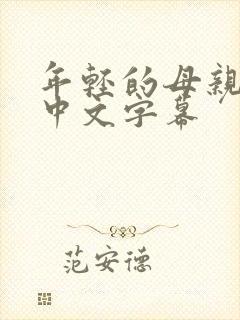 年轻的母亲
中文字幕
范安德